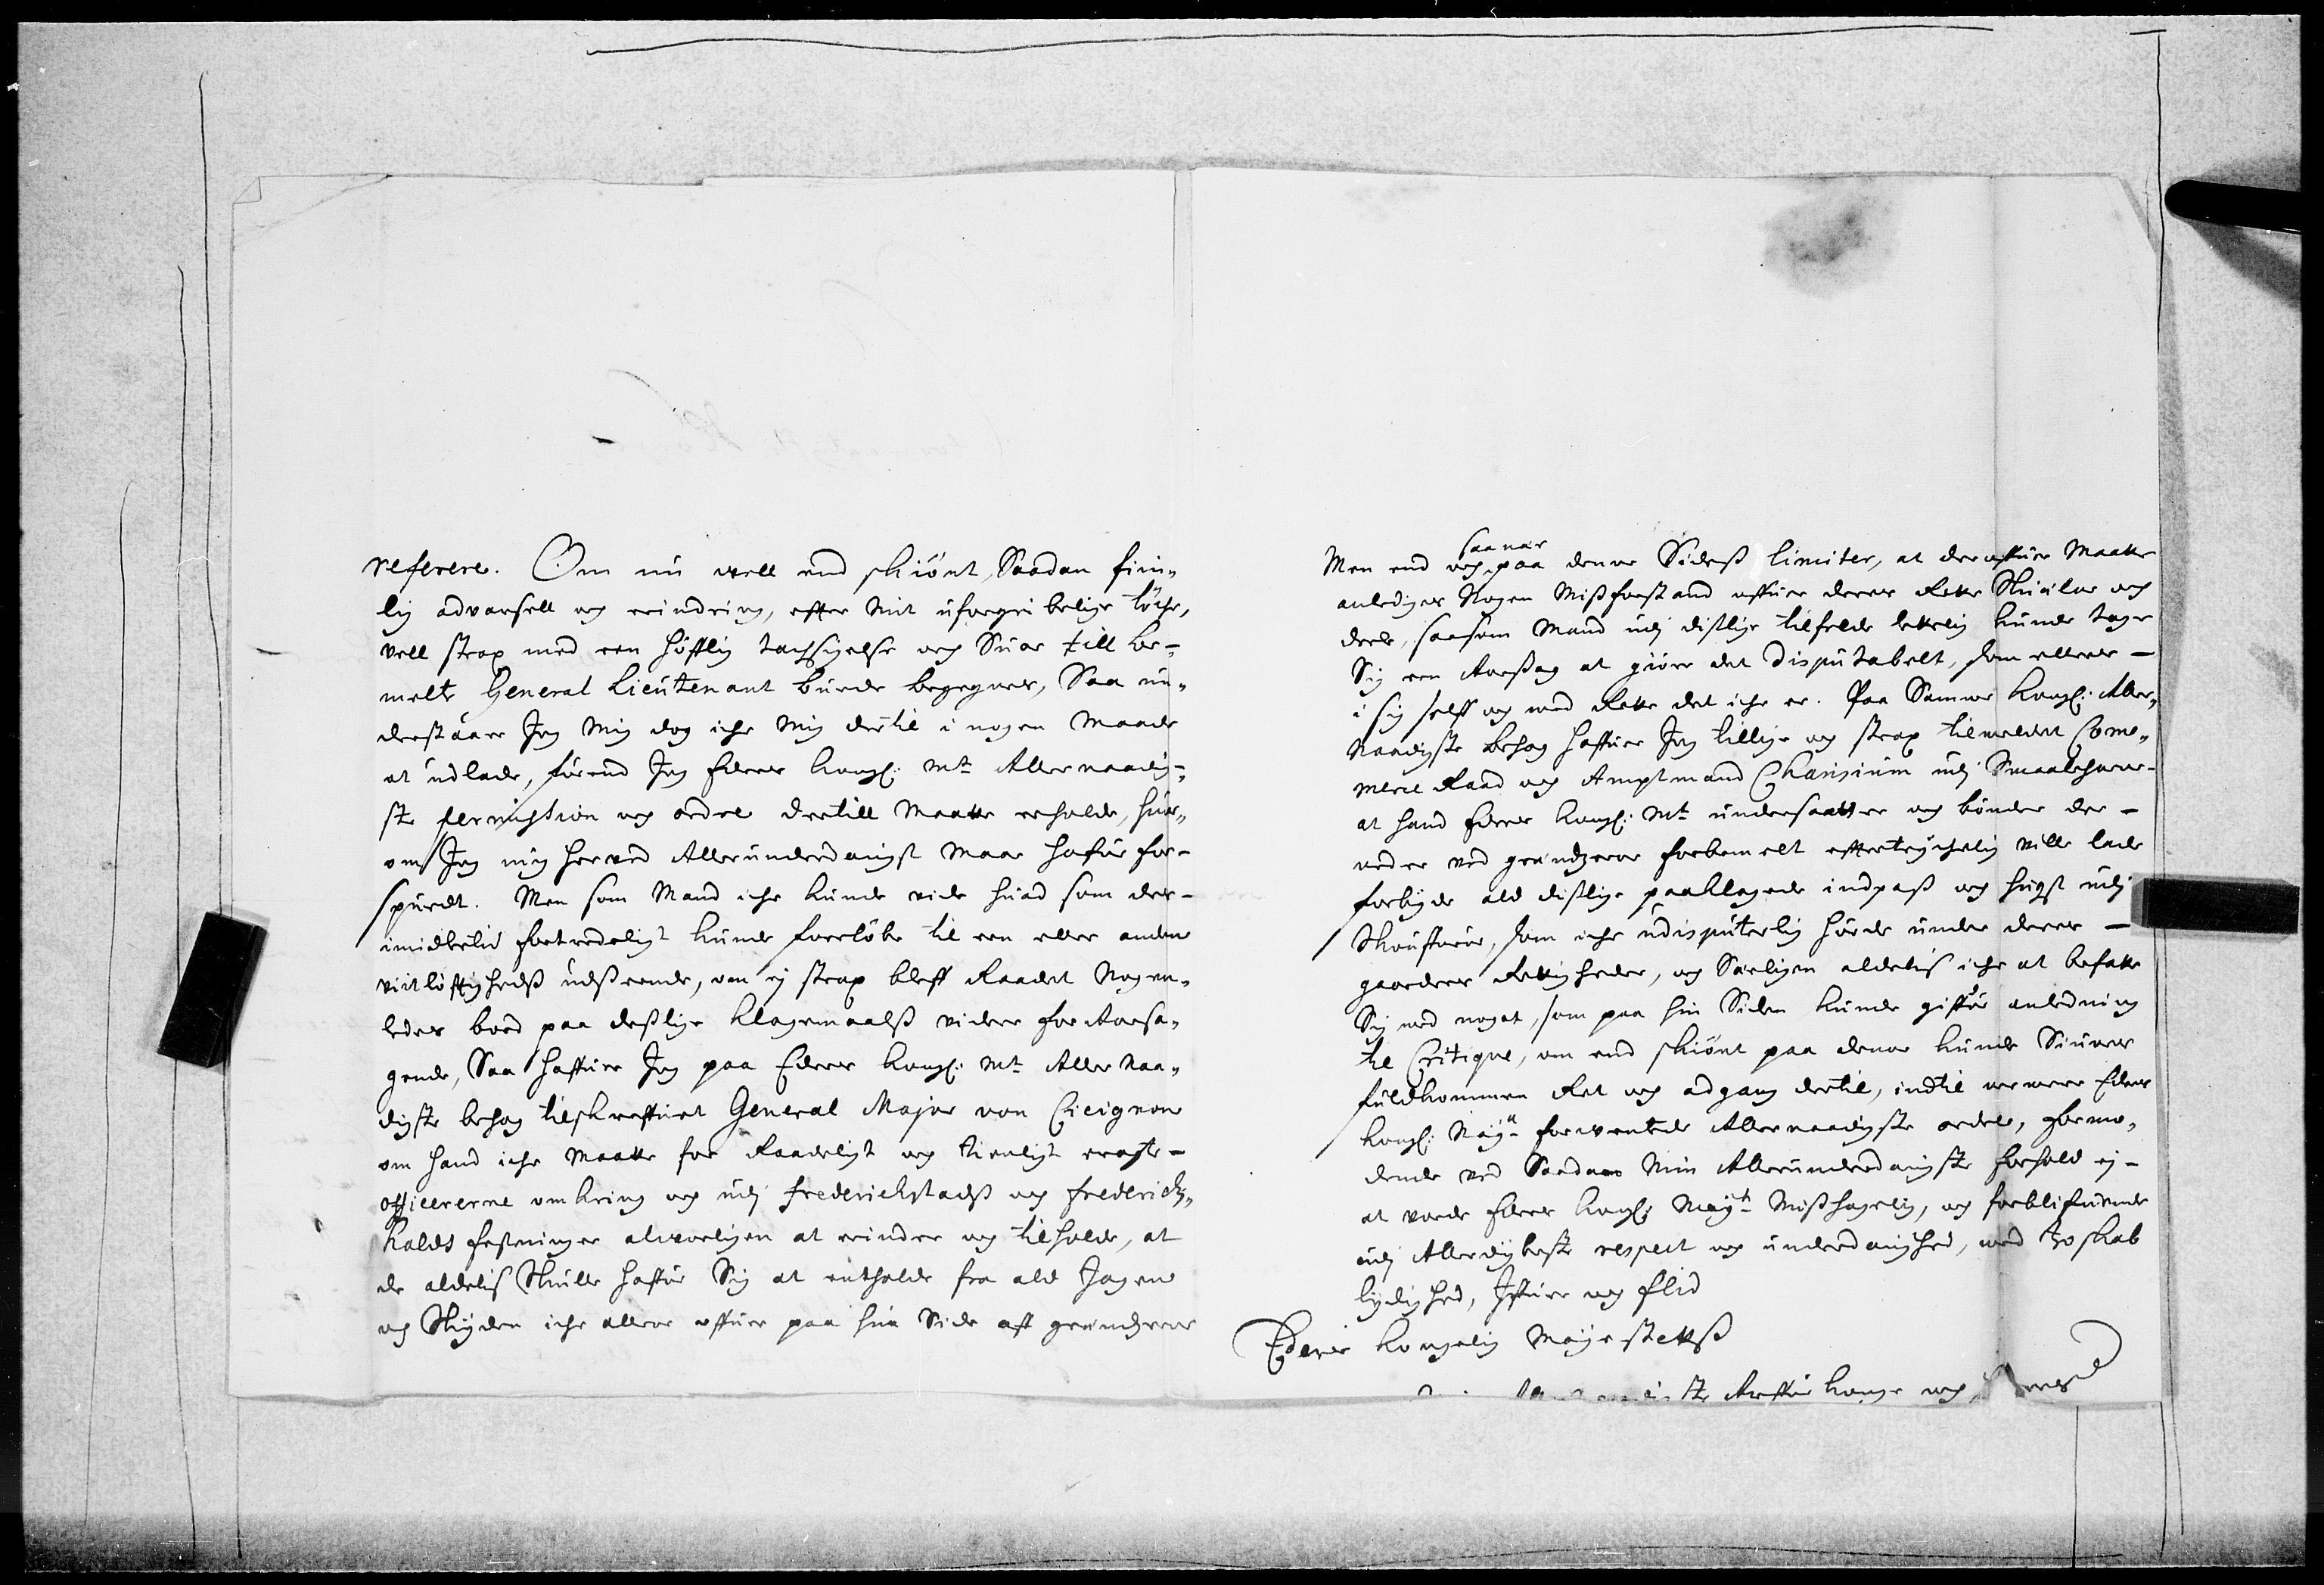 referere. Om nu vell end skiönt, Saadan fiin„
lig advarsell og erindring, efter Mit uforgribelige töche,
vell strax med een höfflig tachsigelse og Suar till be-
melte General Lieutenant burde begegnes, Saa un„
derstaaer Jeg Mig dog iche Mig dertil i nogen Maade
at udlade, förend Jeg Eders Kongl: Mt: Allernaadig-
ste permishion og ordre dertill Maatte erholde, huor„
om Jeg mig herved Allerunderdanigst Maa hafue for-
spurdt. Men som Mand iche kunde vide huad som der-
imidlertid fortredeligt kunde forelöbe til een eller anden
vitlöfftigheds udseende, om ej strax bleff Raadet Nogen„
ledes bod paa deslige klagemaals videre foraarsa„
gende, Saa haffuer Jeg paa Eders Kongl: Mt: Allernaa„
digste behag tilskreffuet General Major von Cicignon
om hand iche Maatte for Raadeligt og tienligt eragte-
officererne omkring og udj Frederichstads og Friderichs„
halds festninger alvorligen at erindre og tilholde, at
de aldelis skulle haffue Sig at entholde fra ald Jagen
og Skyden iche allene offuer paa hin Side aff grendzerne
Men end og saa nær paa denne Sides limiter, at deroffuer Maatte
anlediges Nogen Misforstand offuer deres Rette Skiel og
deele, saasom Mand udj dislige tilfelde letteligen kunde tage
Sig een Aarsag at giöre det Disputabelt, som ellers -
i sig self og med Rette det iche er. Paa Samme Kongl: Aller„
Naadigste behag haffuer Jeg tillige og strax tilmeldet Come„
merce Raad og Amptmand Charisium udj Smaalehnene-
at hand Eders Kongl: Mt: undersaatter og bönder der-
neder ved grendzerne forbemelt effertrychelig ville lade
forbyde ald dislige paaklagede indpas og hugst udj
Skoufuene, som iche udisputerlig hörde under deres -
gaarders Rettigheder, og Særligen aldelis iche at befatte
Sig med noget, som paa hin Siden kunde giffue anledning
til Critique, om end skiönt paa denne kunde Siunes
fuldkommen Ret og adgang dertil, indtil nermere Eders
Kongl: Mayt: forventede Allernaadigste ordre, formo„
dende ved Saadan Min Allerunderdanigste forhold ej-
at vorde Eders Kongl: Mayt: Mishagelig, og forblifuende
udj Allerdybeste respect og underdanighed, med troskab
lydighed, Iffuer og flid
Eders Kongelig Mayestetts
Arffue Konge og